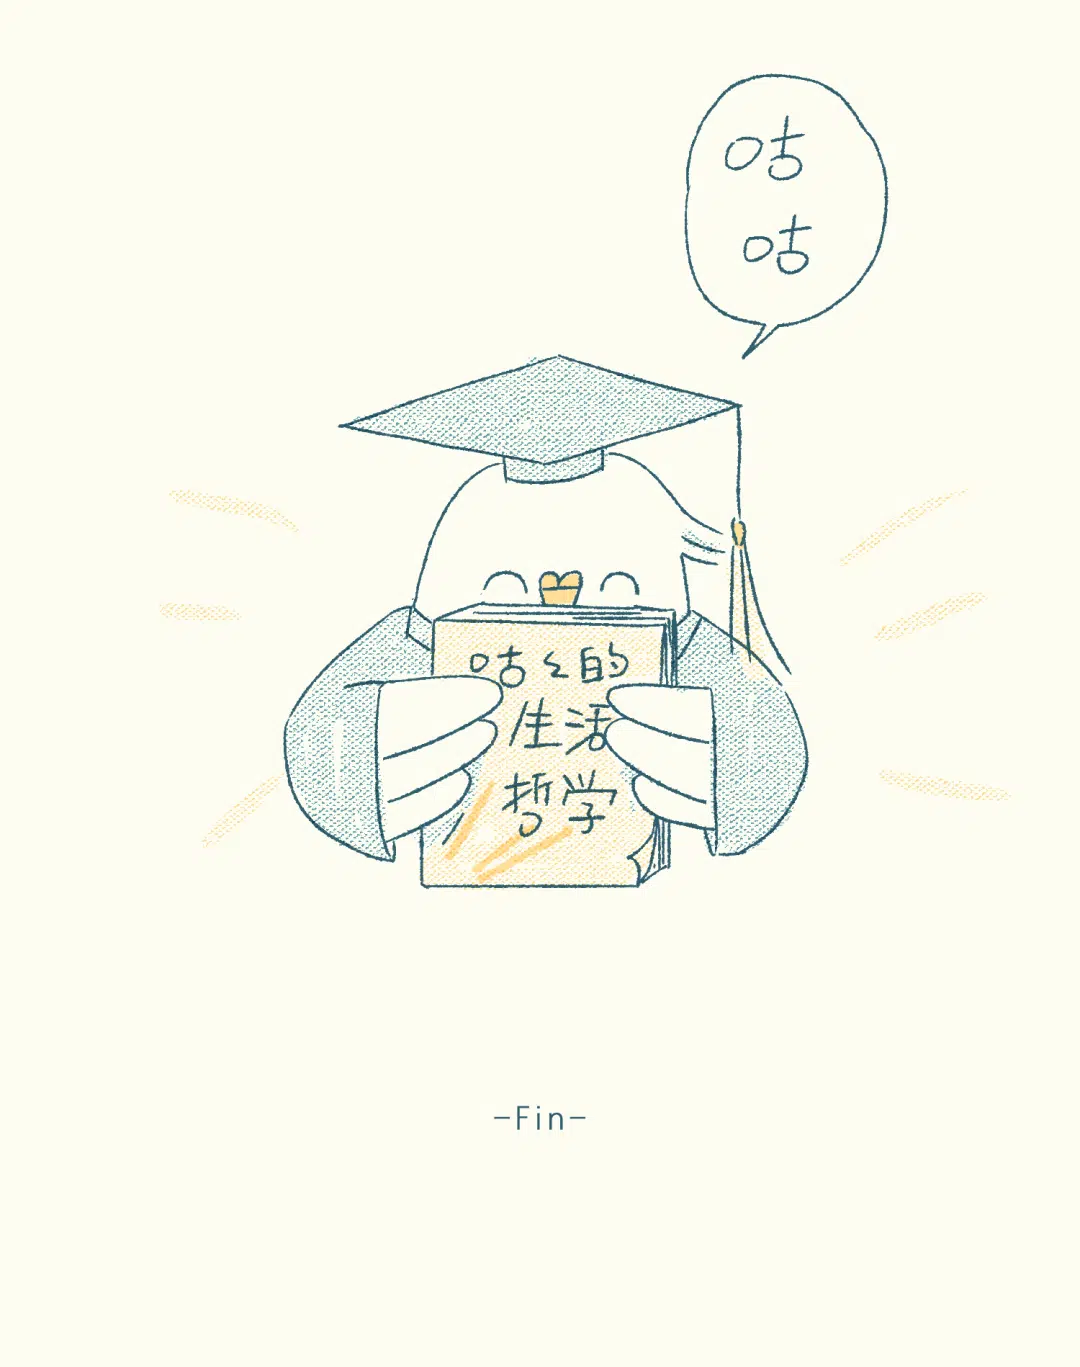 咕
咕
咕々的
生活
哲学
-Fin-